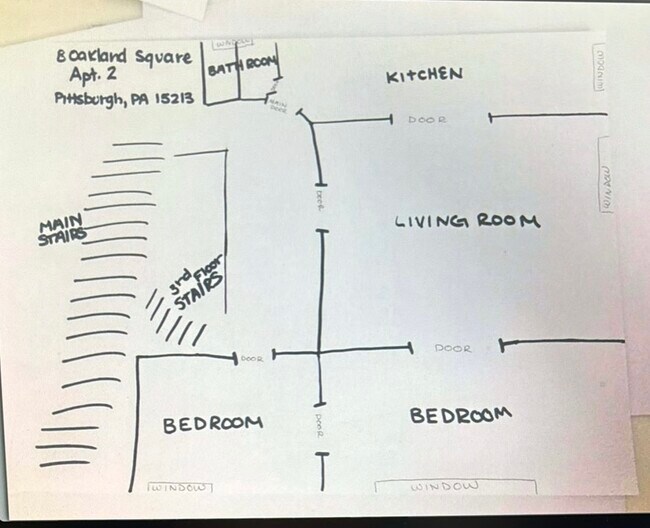 8 Oakland Square
Apt. 2
Pittsburgh, PA 15213
WINDOW
BATHROOM
MAIN
DOOR
KITCHEN
WINDOW
DOOR
DOOR
WINDOW
LIVING ROOM
MAIN
STAIRS
3rd Floor
STAIRS
DOOR
DOOR
BEDROOM
DOOR
BEDROOM
WINDOW
WINDOW